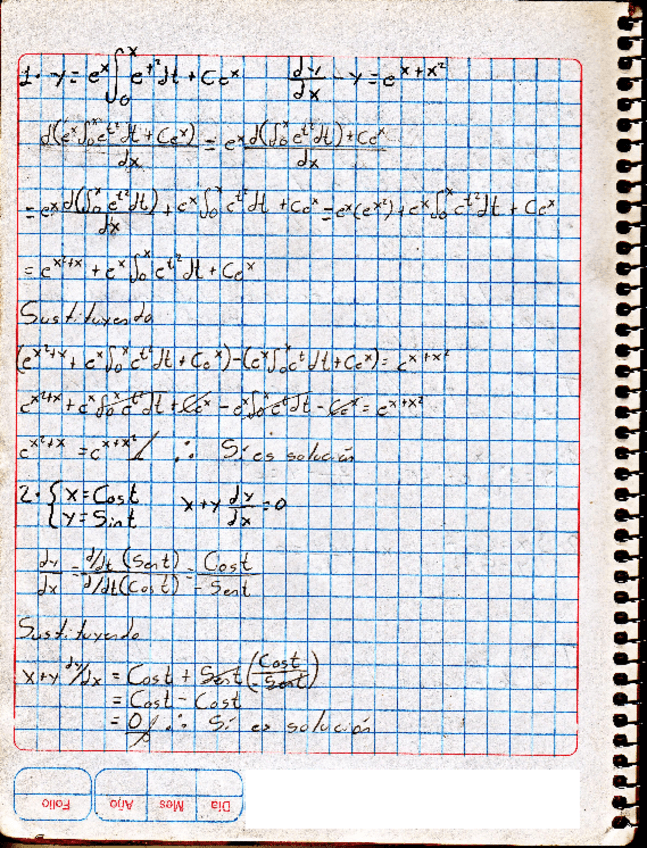 1. y = eˣ∫₀ˣ e^(t²)dt + Ceˣ    dy/dx − y = e^(x+x²)
d(eˣ∫₀ˣe^(t²)dt + Ceˣ)/dx = eˣ d(∫₀ˣe^(t²)dt)+Ceˣ/dx
= eˣ d(∫₀ˣe^(t²)dt)/dx + eˣ∫₀ˣe^(t²)dt + Ceˣ = eˣ(e^(x²)) + eˣ∫₀ˣe^(t²)dt + Ceˣ
= e^(x²+x) + eˣ∫₀ˣe^(t²)dt + Ceˣ
Sustituyendo
(e^(x²+x) + eˣ∫₀ˣe^(t²)dt + Ceˣ) − (eˣ∫₀ˣe^(t²)dt + Ceˣ) = e^(x+x²)
e^(x²+x) + eˣ∫₀ˣe^(t²)dt + Ceˣ − eˣ∫₀ˣe^(t²)dt − Ceˣ = e^(x+x²)
e^(x²+x) = e^(x+x²) // ∴ Sí es solución
2. { x = Cos t    x + y dy/dx = 0
y = Sin t
dy/dx = d/dt (Sen t) / d/dt (Cos t) = Cos t / − Sen t
Sustituyendo
x+y dy/dx = Cos t + Sen t (Cos t / −Sen t)
= Cos t − Cos t
= 0 // ∴ Sí es solución
Folio Año Mes Día